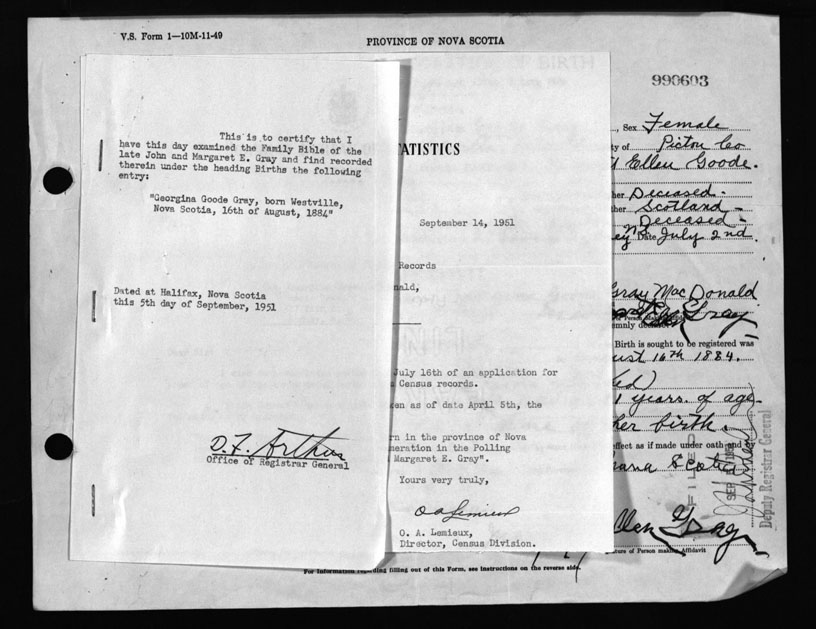 V.S. Form 1—10M-11-49
PROVINCE OF NOVA SCOTIA
990603
This is to certify that I
have this day examined the Family Bible of the
late John and Margaret E. Gray and find recorded
therein under the heading Births the following
entry:
"Georgina Goode Gray, born Westville,
Nova Scotia, 16th of August, 1884"
Dated at Halifax, Nova Scotia
this 5th day of September, 1951
D. F. Arthur
Office of Registrar General
TATISTICS
September 14, 1951
Records
nald,
July 16th of an application for
Census records.
en as of date April 5th, the
rn in the province of Nova
neration in the Polling
Margaret E. Gray".
Yours very truly,
O A Lemieux
O. A. Lemieux,
Director, Census Division.
Sex Female
ty of Pictou Co
Ellen Goode.
her Deceased.
ther Scotland
Deceased
Date July 2nd.
Gray MacDonald
Gray
emnly declare
Birth is sought to be registered was
ust 16th 1884.
1 years. of age
her birth.
effect as if made under oath and by
FILED
SEP
Deputy Registrar General
llen Gray
ture of Person making Affidavit
For Information regarding filling out of this Form, see instructions on the reverse side.